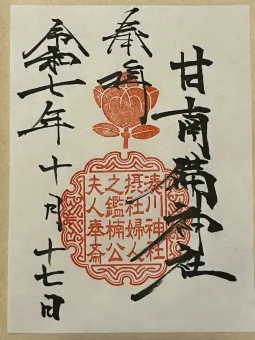 奉拝
甘南備神社
湊川神社
摂社婦人
之鑑楠公
夫人奉斎
令和七年十月十七日